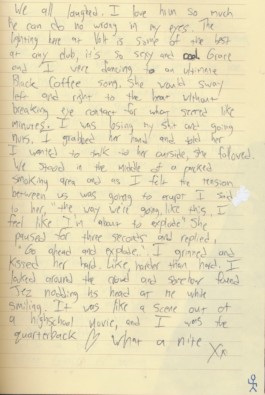 We all laughed. I love him so much
he can do no wrong in my eyes. The
lighting here at is some of the best
at any club, it's so sexy and cool Grace
and I were dancing to an ultimate
Black Coffee song. She would sway
left and right to the beat without
breaking eye contact for what seemed like
minutes. I was losing my shit and going
nuts. I grabbed her hand and told her
I wanted to talk to her outside, she followed.
We stood in the middle of a packed
smoking area and as I felt the tensions
between us was going to erupt I said
to her, "the way we're going like this, I
feel like I'm about to explode" She
paused for three seconds and replied,
"Go ahead and explode". I grinned and
kissed her hard. Like, harder than hard. I
looked around the crowd and somehow found
Jez nodding his head at me while
smiling. It was like a scene out of
a highschool movie, and I was the
quarterback // What a nite Xx